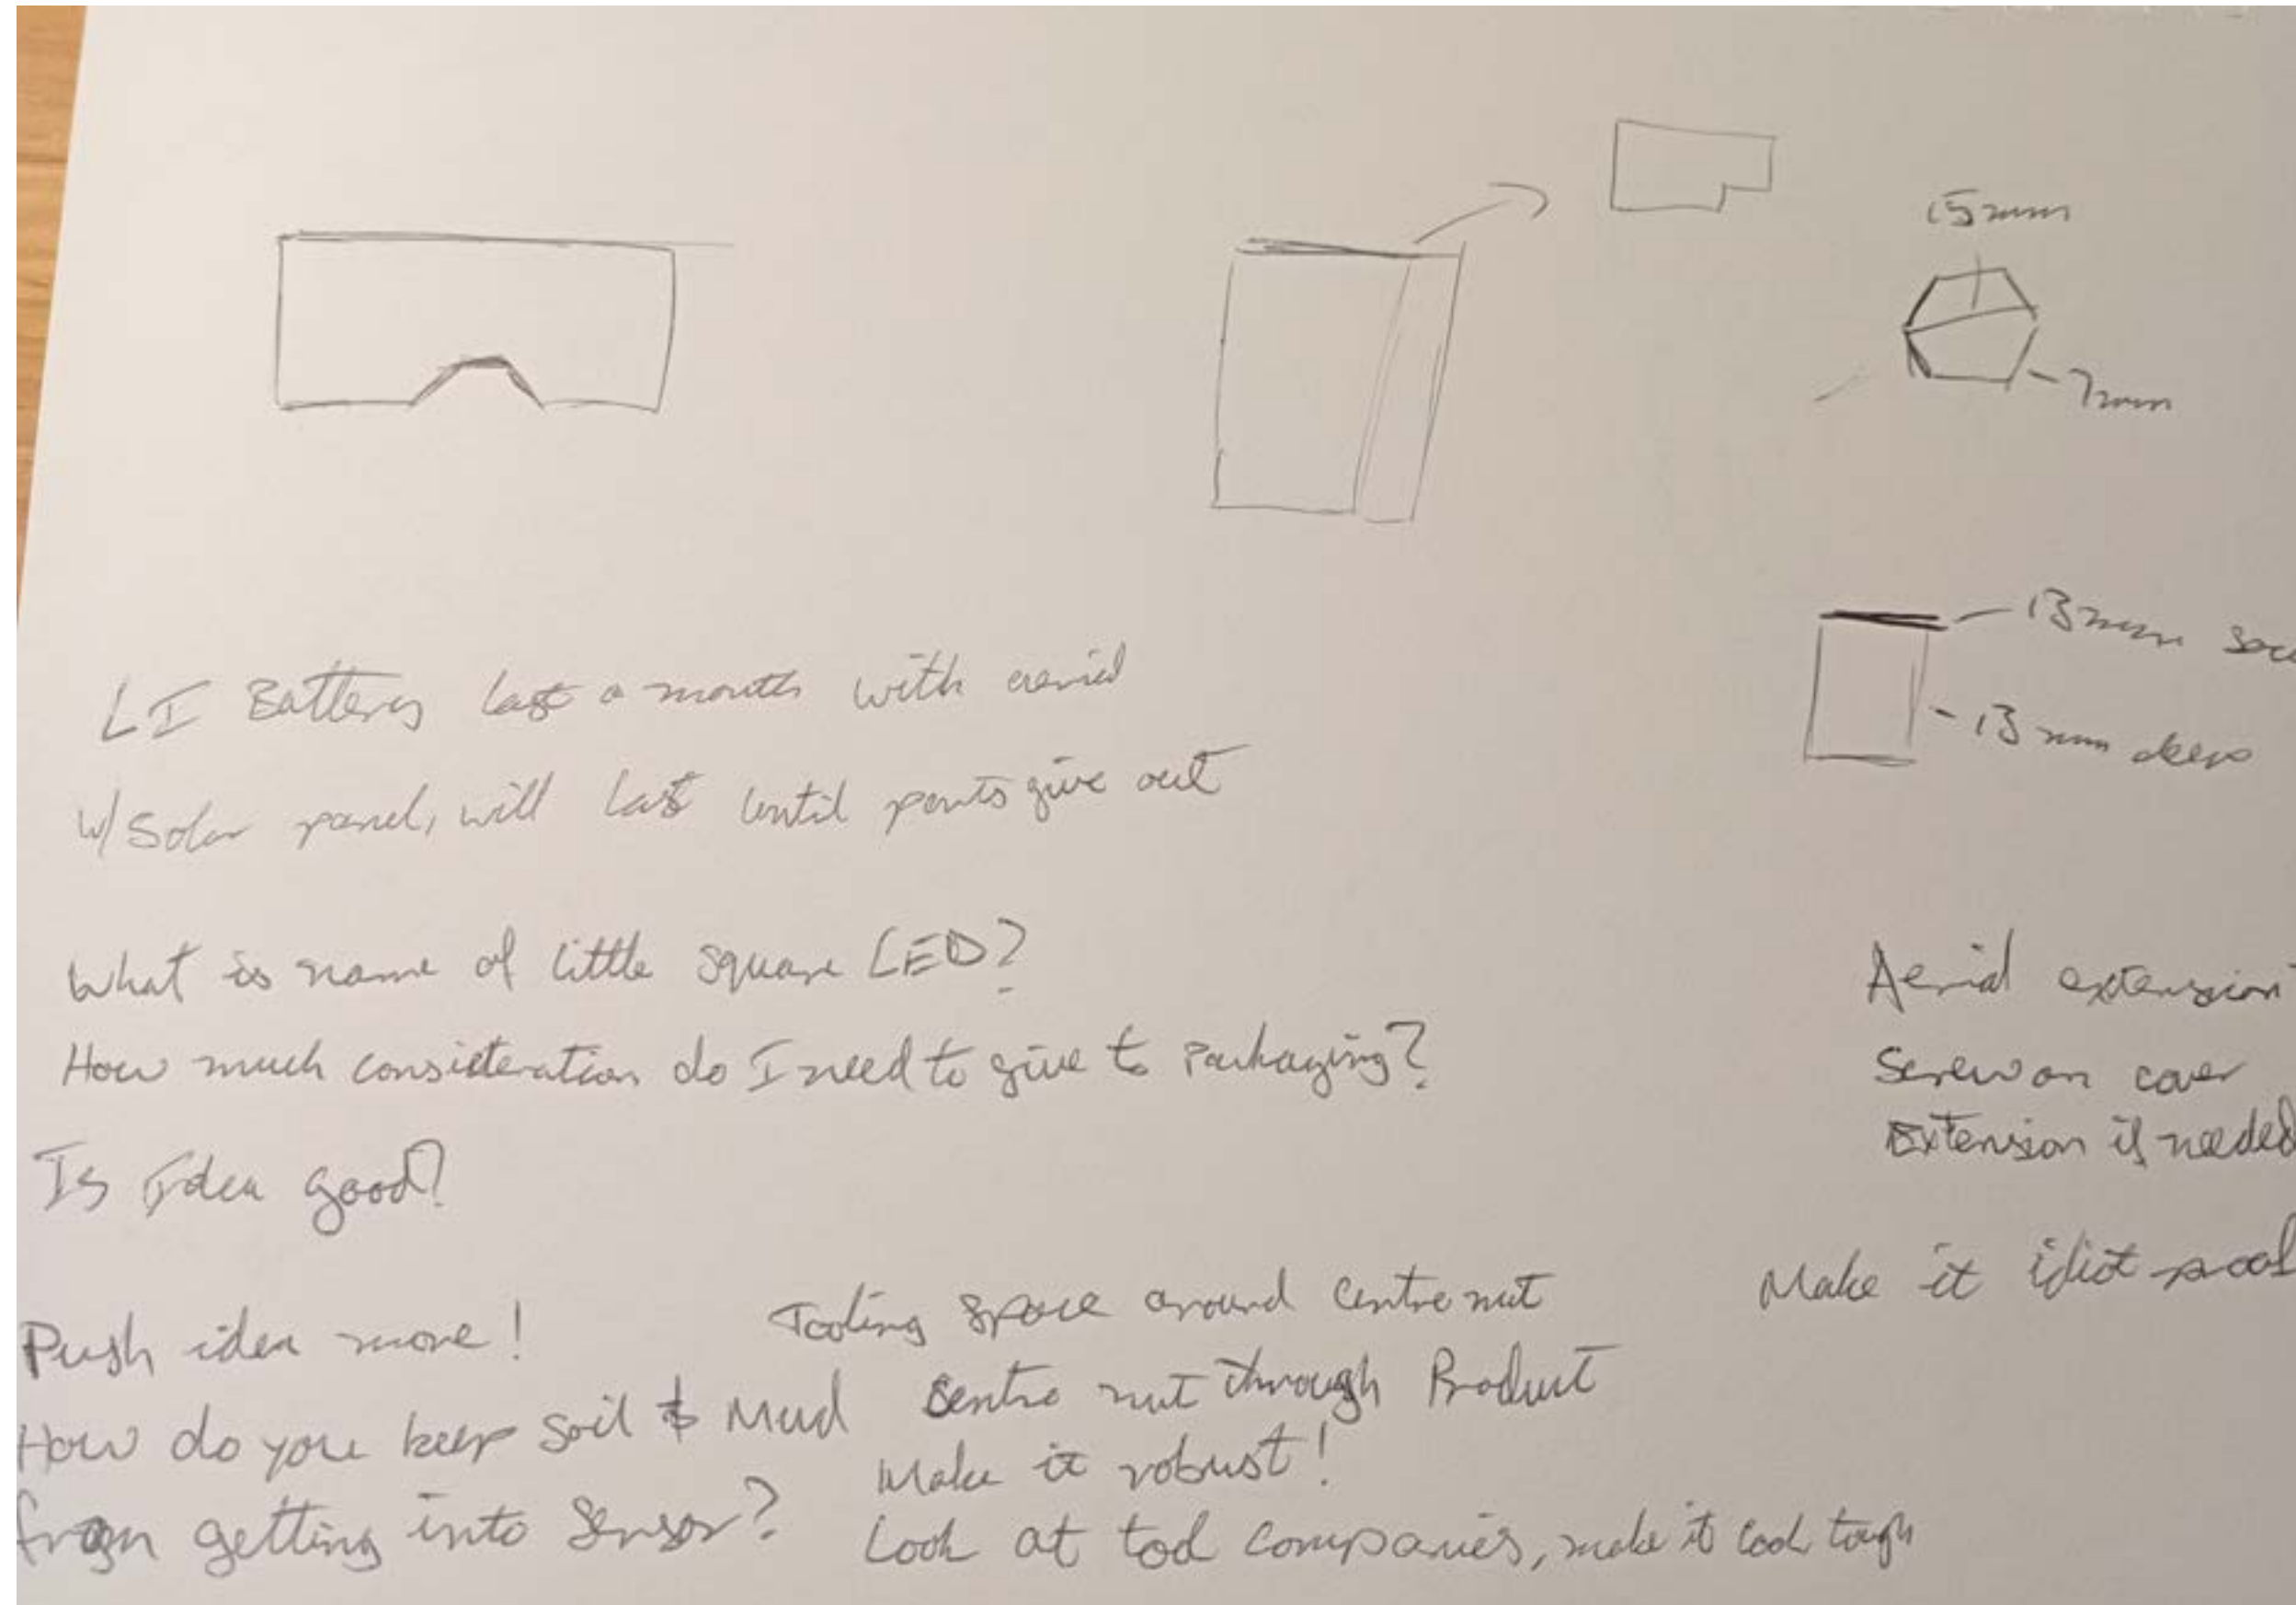 15mm
7mm
13mm
13mm deep
LI Battery last a month with aerial
w/ Solar panel, will last until parts give out
What is name of little square LED?
How much consideration do I need to give to Packaging?
Is Idea good?
Aerial extension
Screw on cover
Extension if needed
Make it idiot proof
Push idea more!
How do you keep soil & Mud
from getting into Sensor?
Tooling Space around Centre nut
Centre nut through Product
Make it robust!
Look at tool companies, make it look tough